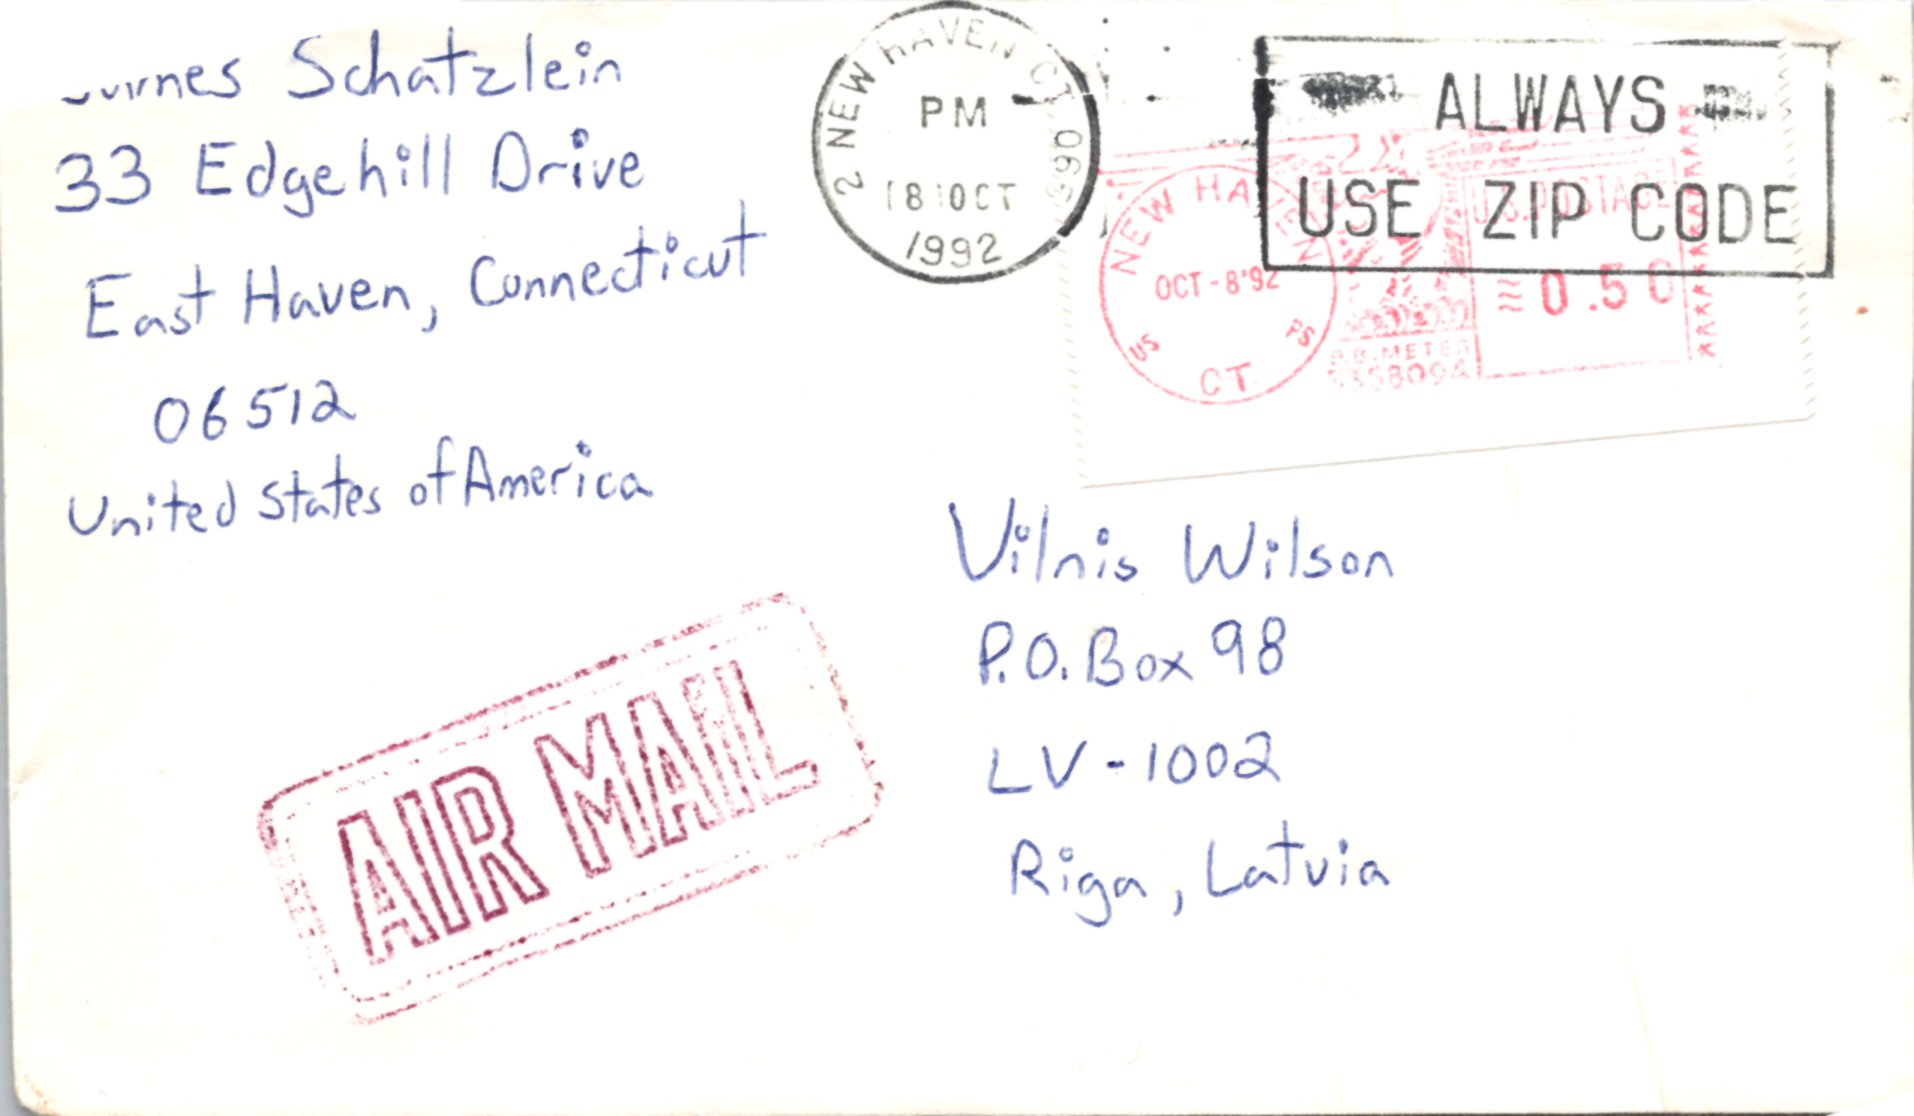 Schatzlein
33 Edgehill Drive
East Haven, Connecticut
06512
United States of America
2 NEW HAVEN CT 06
PM
1992
ALWAYS
USE ZIP CODE
NEW HAVEN
OCT-8'92
US PS
CT
U.S. POSTAGE
P.B. METER
AIR MAIL
Vilnis Wilson
P.O. Box 98
LV-1002
Riga, Latvia